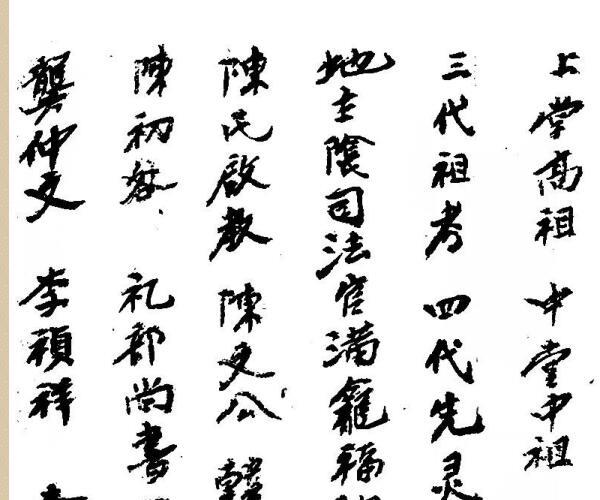 上堂高祖 中堂中祖
三代祖考 四代先灵
地主陰司法官满龕福
陳民啟教 陳文公 韓
陳初發 礼部尚書
龔仲文 李禎祥